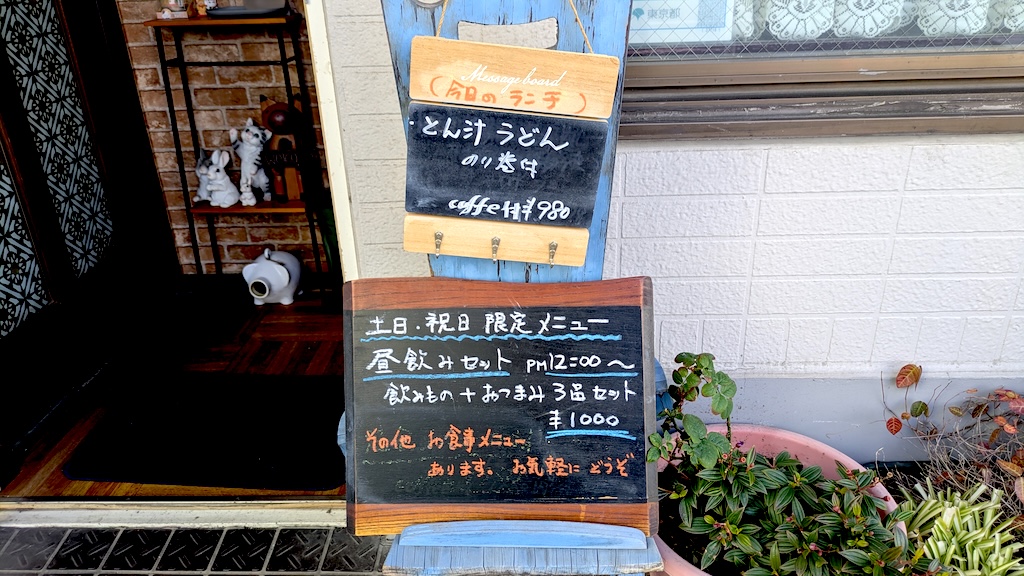 東京都
Message board
(今日の ランチ)
・とん汁 うどん
のり巻付
coffe付¥980
土日・祝日 限定メニュー
昼飲みセット PM12:00〜
飲みもの+おつまみ3品セット
¥1000
その他 お食事メニュー
あります。お気軽に どうぞ